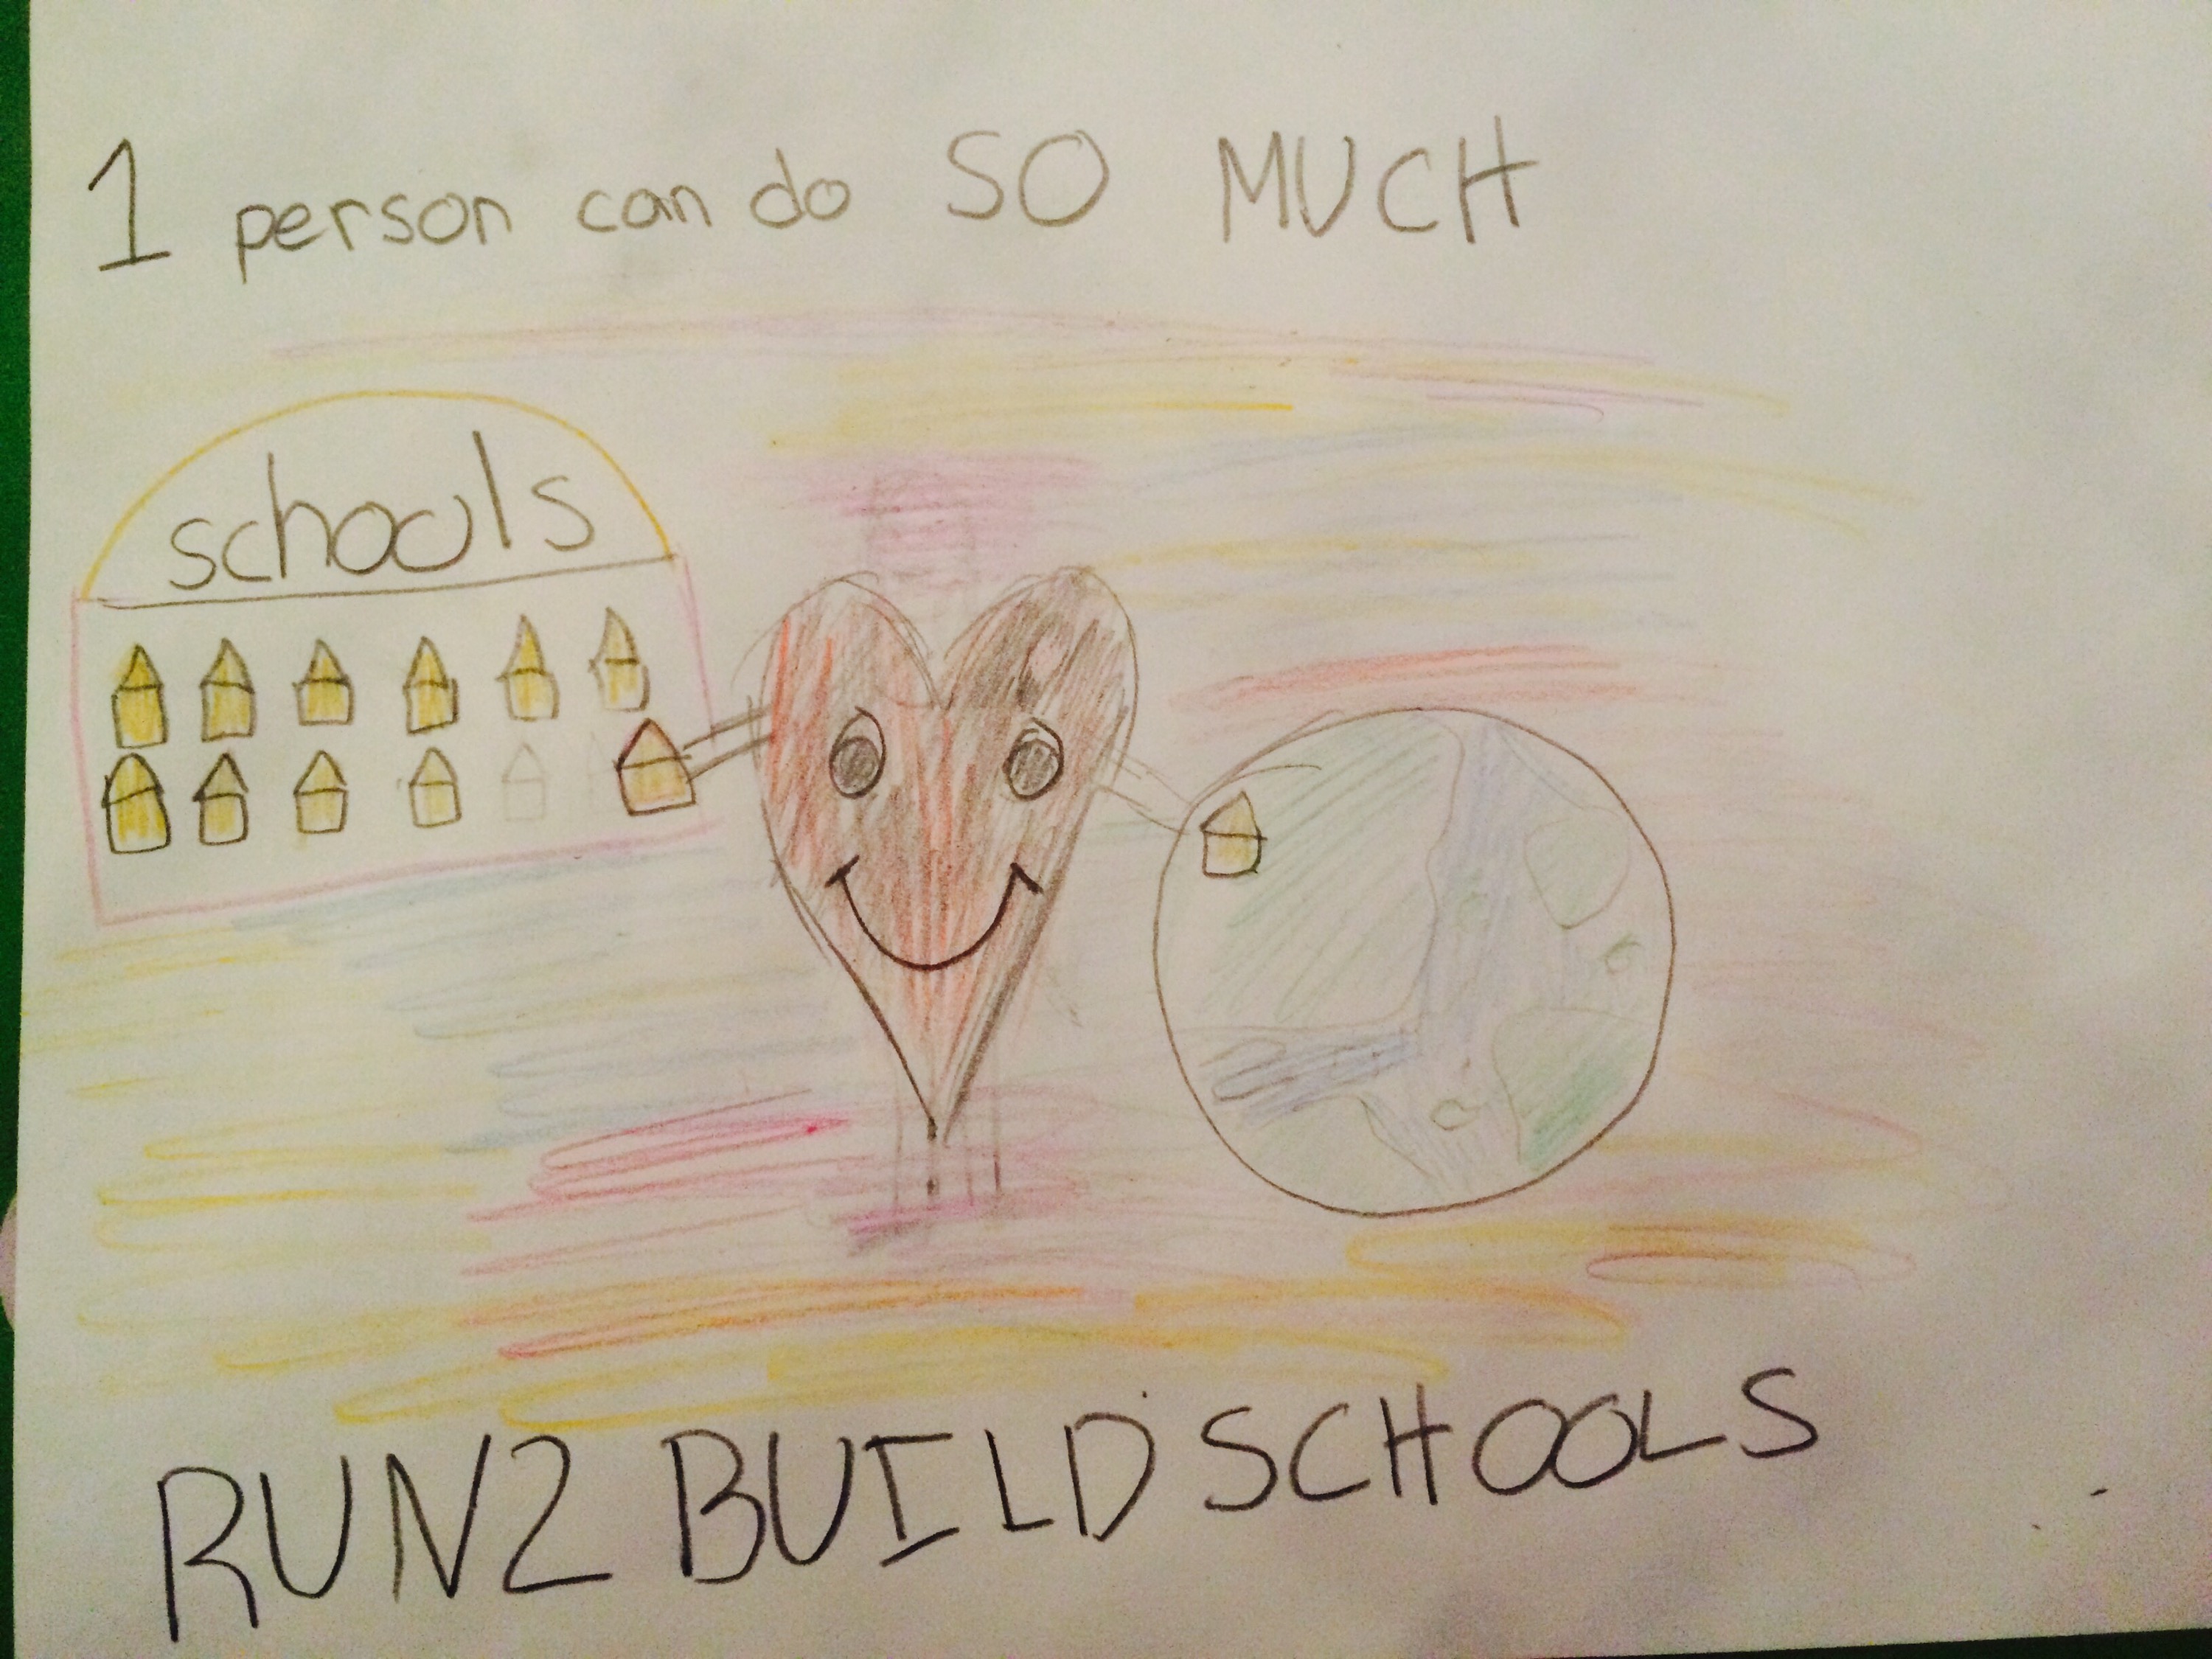 1 person can do SO MUCH
schools
RUN2 BUILD SCHOOLS